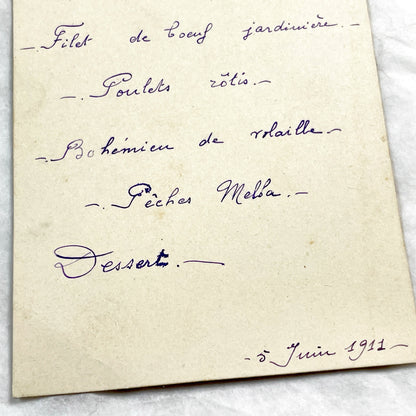 - Filet de boeuf jardinière. -
-. Poulets rôtis. -
-. Bohémien de volaille -
-. Pêches Melba. -
Dessert. -
- 5 Juin 1911 -